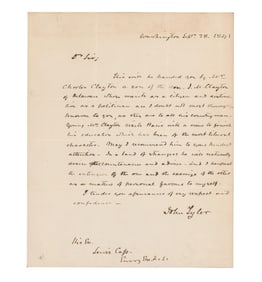 Washington Sept 28. 1841
Dr Sir;
This will be handed you by Mr.
Charles Clayton a son of the Hon. J. M. Clayton
of Delaware whose worth as a citizen and
as a politician are I doubt not most
known to you, as they are to all his countrymen.
Young Mr. Clayton visits Paris with a view to finish
his education which has been of the most liberal
character. May I recommend him to your kindest
attention. In a land of strangers he will naturally
desire countenance and advice - and I bespeak
the extension of the one and the of the other
as a matter of personal favour to myself.
I tender you assurances of my respect and
confidence -
John Tyler
His Ex.
Lewis Cass